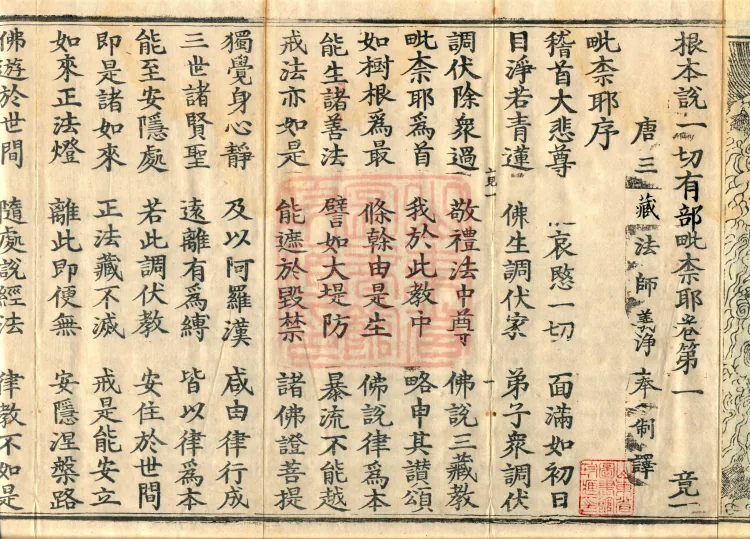 根本説一切有部毗柰耶卷第一 竟一
唐三藏法師義淨奉制譯
毗柰耶序
稽首大悲尊 哀愍一切 面滿如初日
目淨若青蓮 佛生調伏家 弟子衆調伏
調伏除衆過 敬禮法中尊 佛説三藏教
毗柰耶爲首 我於此教中 略申其讚頌
如樹根爲最 條幹由是生 佛説律爲本
能生諸善法 譬如大堤防 暴流不能越
戒法亦如是 能遮於毀禁 諸佛證菩提
獨覺身心靜 及以阿羅漢 咸由律行成
三世諸賢聖 遠離有爲縛 皆以律爲本
能至安隱處 若此調伏教 安住於世間
即是諸如來 正法藏不滅 戒是能安立
如來正法燈 離此即便無 安隱涅槃路
佛遊於世間 隨處説經法 律教不如是